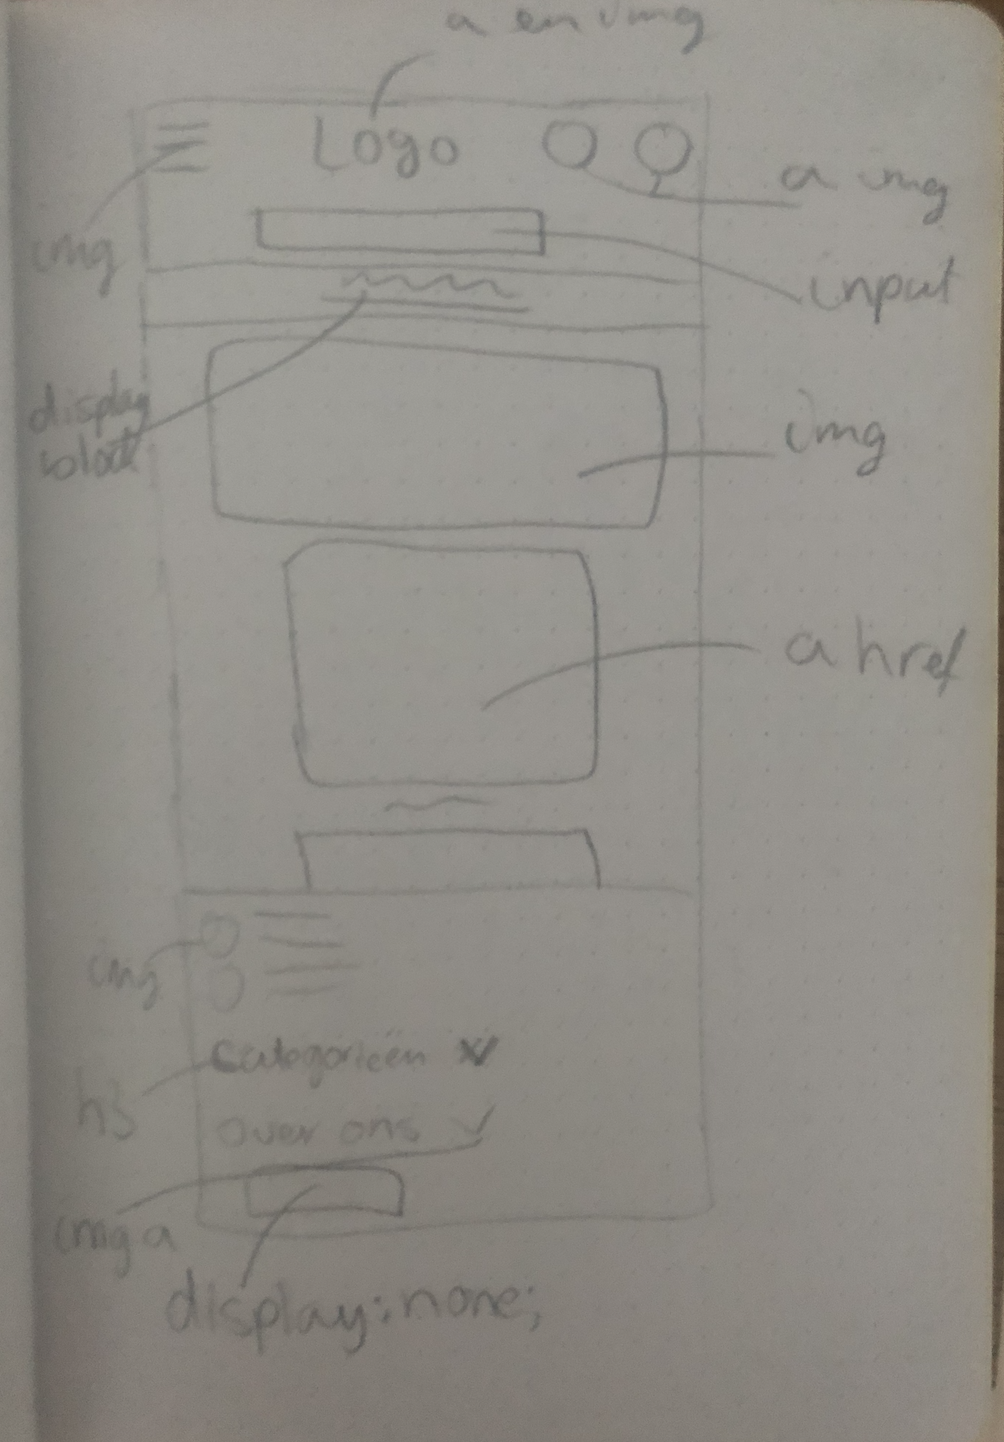 a en img
Logo
a img
img
input
display
block
img
a href
img
Categorieën
h3
Over ons
img a
display: none;